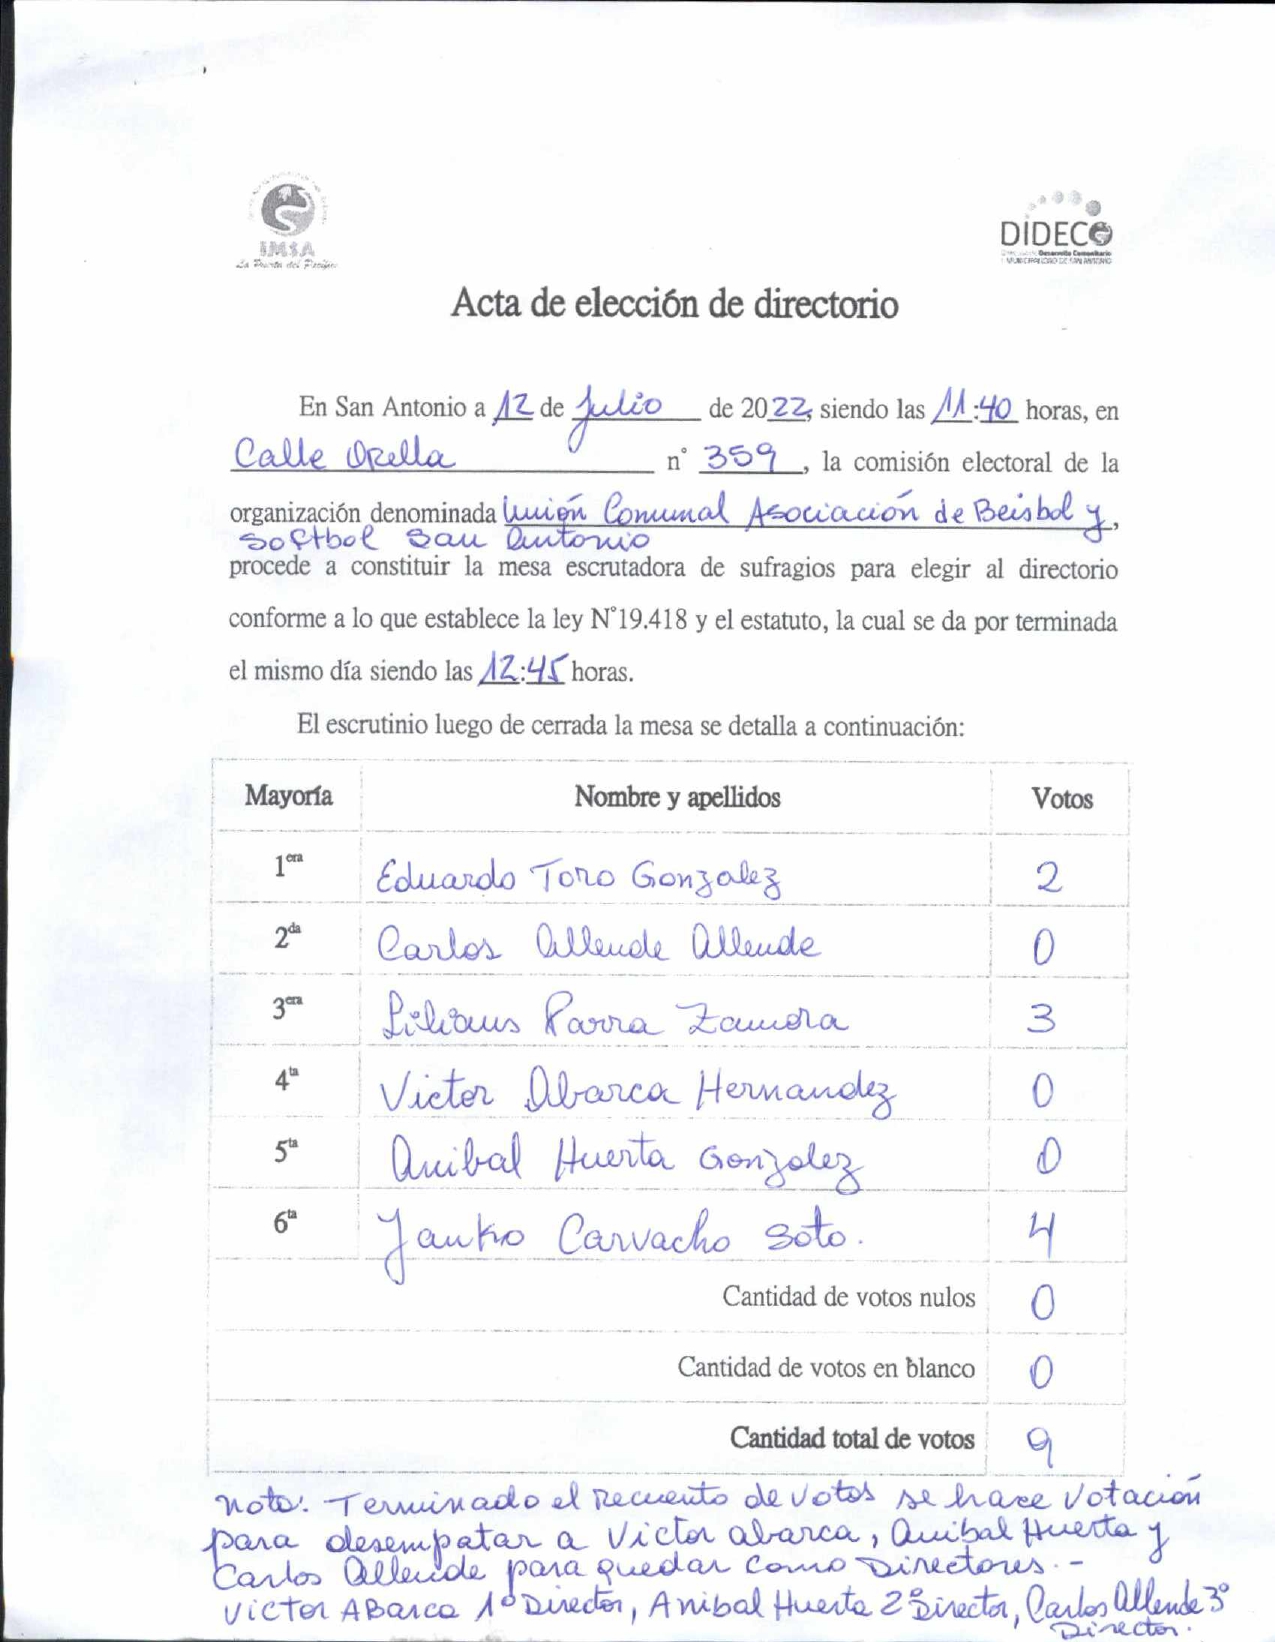 IMSA
La Puerta del Pacífico
DIDECO
Desarrollo Comunitario
MUNICIPALIDAD DE SAN ANTONIO
Acta de elección de directorio
En San Antonio a 12 de Julio de 2022, siendo las 11:40 horas, en
Calle Orella n° 359, la comisión electoral de la
organización denominada Unión Comunal Asociación de Beisbol y,
Softbol San Antonio
procede a constituir la mesa escrutadora de sufragios para elegir al directorio
conforme a lo que establece la ley N°19.418 y el estatuto, la cual se da por terminada
el mismo día siendo las 12:45 horas.
El escrutinio luego de cerrada la mesa se detalla a continuación:
Mayoría Nombre y apellidos Votos
1era Eduardo Toro Gonzalez 2
2da Carlos Allende Allende 0
3era Liliana Parra Zamora 3
4ta Victor Abarca Hernandez 0
5ta Anibal Huerta Gonzalez 0
6ta Yanko Carvacho Soto. 4
Cantidad de votos nulos 0
Cantidad de votos en blanco 0
Cantidad total de votos 9
Nota: Terminado el Recuento de votos se hace Votación
para desempatar a Victor abarca, Anibal Huerta y
Carlos Allende para quedar como Directores.-
Victor Abarca 1° Director, Anibal Huerta 2° Director, Carlos Allende 3°
Director.